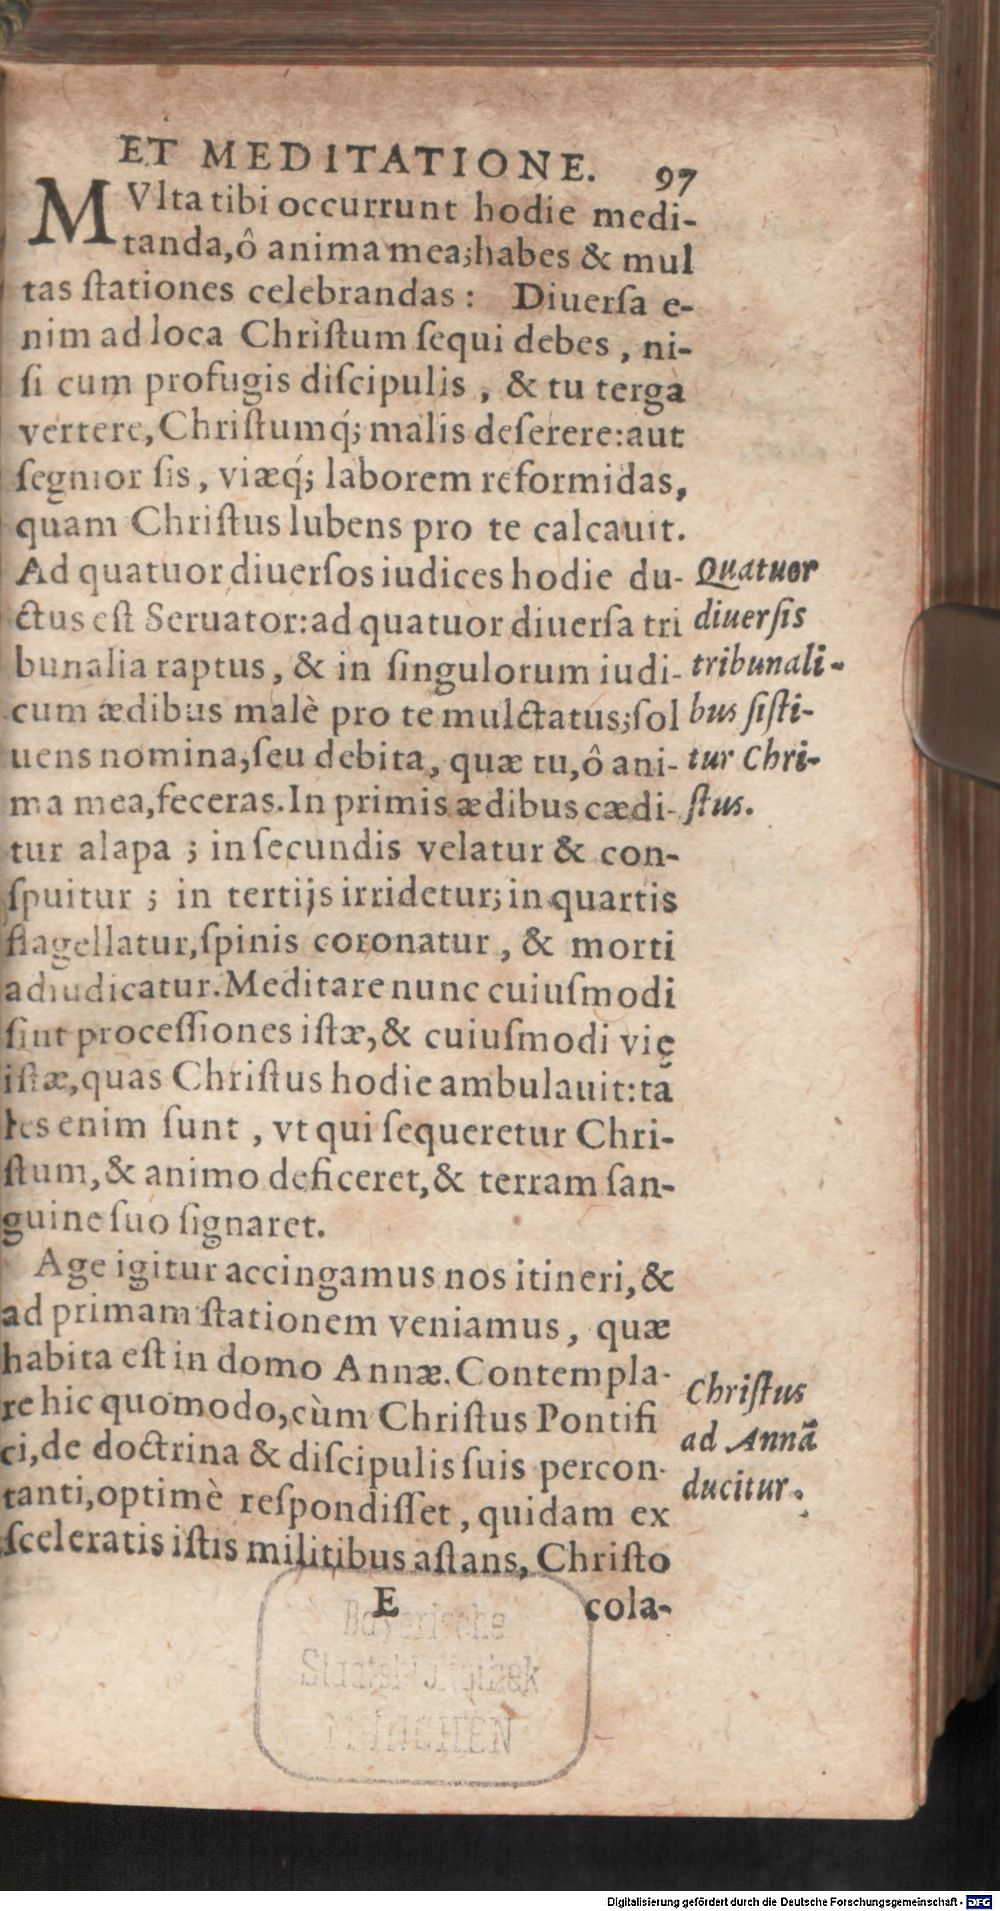 ET MEDITATIONE. 97
MVlta tibi occurrunt hodie medi-
tanda, ô anima mea; habes & mul
tas ſtationes celebrandas: Diuerſa e-
nim ad loca Chriſtum ſequi debes, ni-
ſi cum profugis diſcipulis, & tu terga
vertere, Chriſtumq́; malis deſerere: aut
ſegnior ſis, viæq́; laborem reformidas,
quam Chriſtus lubens pro te calcauit.
Ad quatuor diuerſos iudices hodie du-
ctus eſt Seruator: ad quatuor diuerſa tri
bunalia raptus, & in ſingulorum iudi-
cum ædibus malè pro te mulctatus; ſol
uens nomina, ſeu debita, quæ tu, ô ani-
ma mea, feceras. In primis ædibus cædi-
tur alapa; in ſecundis velatur & con-
ſpuitur; in tertijs irridetur; in quartis
flagellatur, ſpinis coronatur, & morti
adiudicatur. Meditare nunc cuiuſmodi
ſint proceſſiones iſtæ, & cuiuſmodi vię
iſtæ, quas Chriſtus hodie ambulauit: tā
les enim ſunt, vt qui ſequeretur Chri-
ſtum, & animo deficeret, & terram ſan-
guine ſuo ſignaret.
Age igitur accingamus nos itineri, &
ad primam ſtationem veniamus, quæ
habita eſt in domo Annæ. Contempla-
re hic quomodo, cùm Chriſtus Pontifi
ci, de doctrina & diſcipulis ſuis percon-
tanti, optimè reſpondiſſet, quidam ex
ſceleratis iſtis militibus aſtans, Chriſto
E cola-
Quatuor
diuerſis
tribunali-
bus ſiſti-
tur Chri-
ſtus.
Chriſtus
ad Annā
ducitur.
Bayerische
Staatsbibliothek
MÜNCHEN
Digitalisierung gefördert durch die Deutsche Forschungsgemeinschaft - DFG